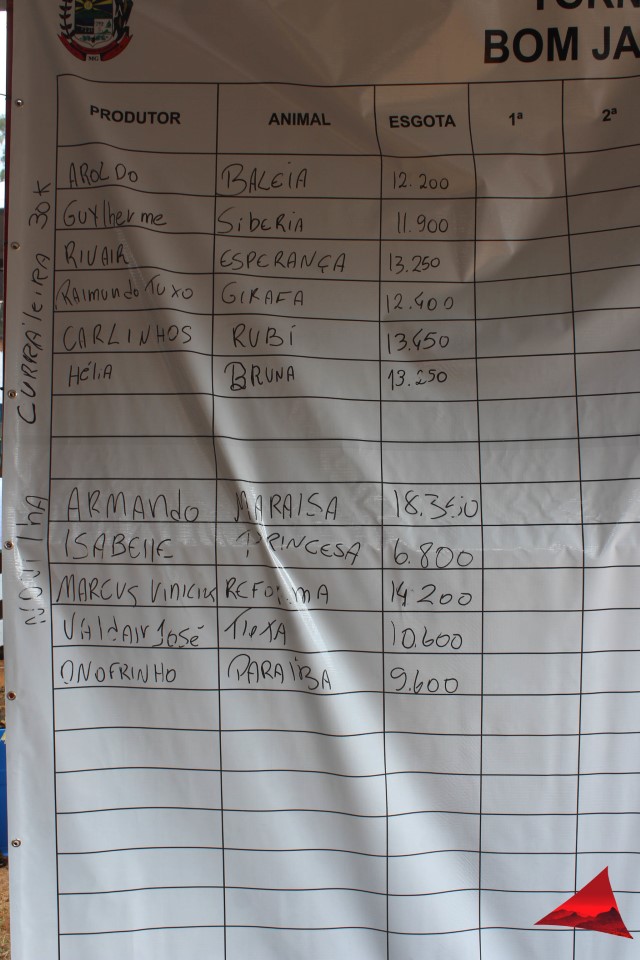 BOM JA
PRODUTOR ANIMAL ESGOTA 1ª 2ª
CURRALEIRA 30K
AROLDO BALEIA 12.200
Guylherme SiBERIA 11.900
RIVAIR ESPERANÇA 13.250
RAimundo TUXO GIRAFA 12.400
CARLINHOS RUBÍ 13.450
HéLiA BRUNA 13.250
NOViLhA
ARMANdo MARAISA
ISABEllE PRINCESA 6.800
MARCUS ViNiCiUS REFORMA 14.200
VAldAiR José 10.600
ONOFRINHO PARAÍBA 9.600